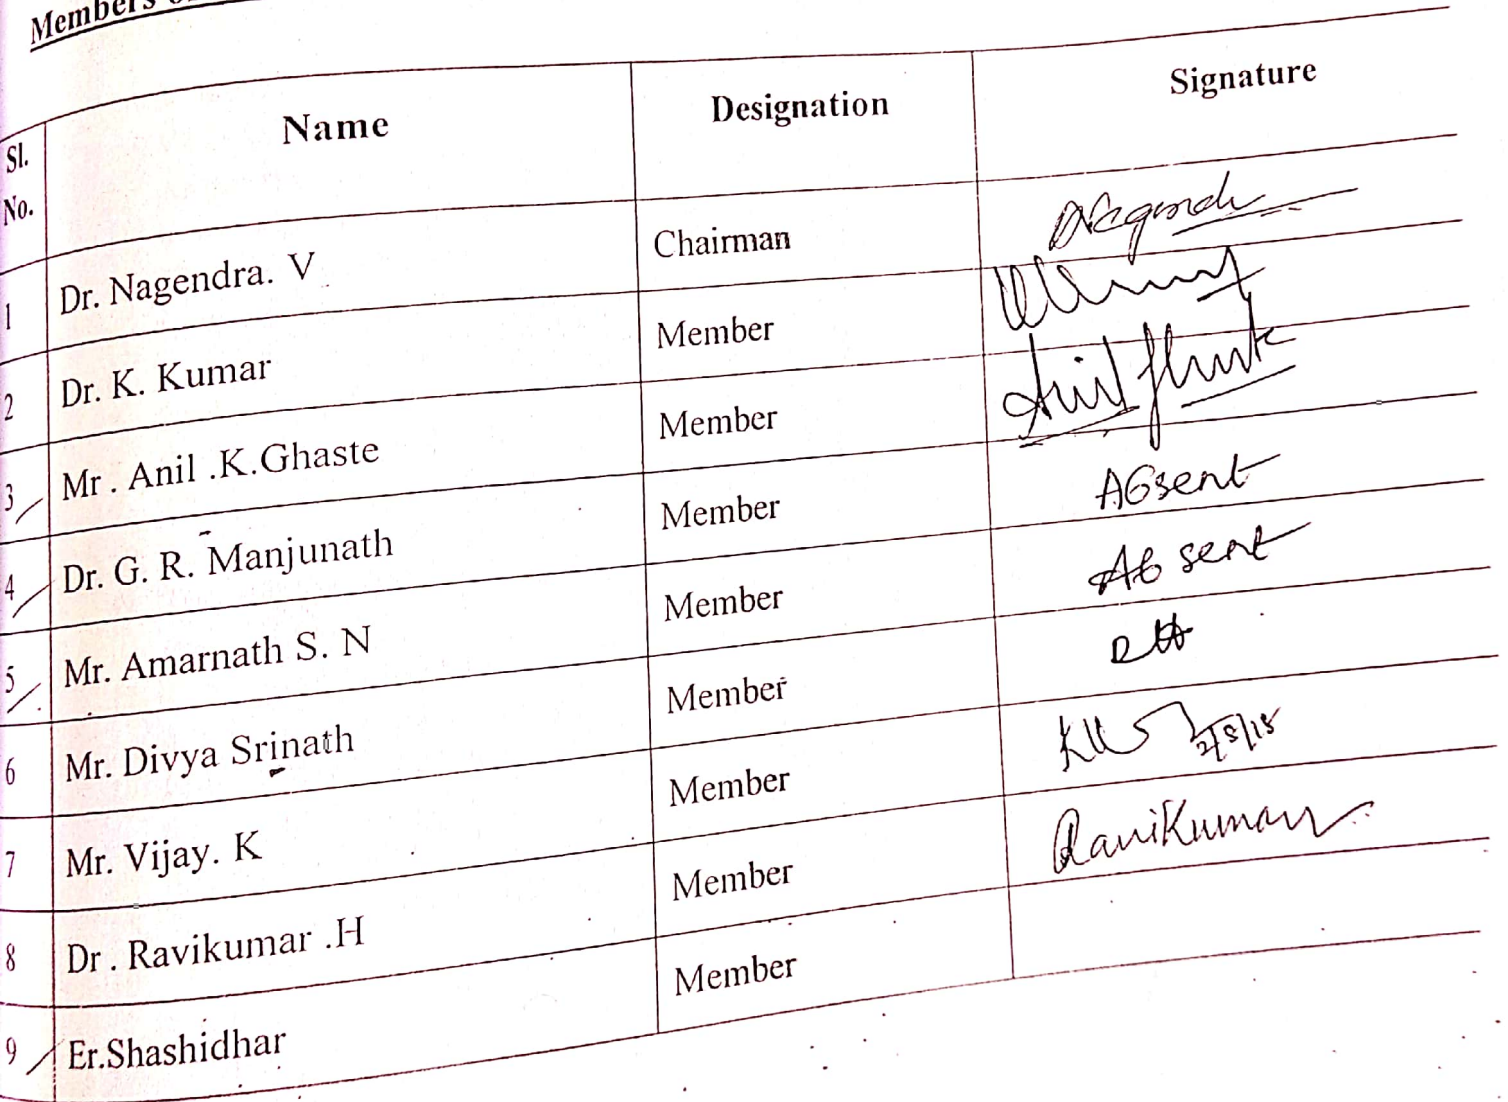 Members
Sl. No. Name Designation Signature
1 Dr. Nagendra. V Chairman Nagendr
2 Dr. K. Kumar Member
3 Mr . Anil .K.Ghaste Member Anil
4 Dr. G. R. Manjunath Member Absent
5 Mr. Amarnath S. N Member Absent
6 Mr. Divya Srinath Member
7 Mr. Vijay. K Member 2/8/18
8 Dr . Ravikumar .H Member RaviKumar
9 Er.Shashidhar Member